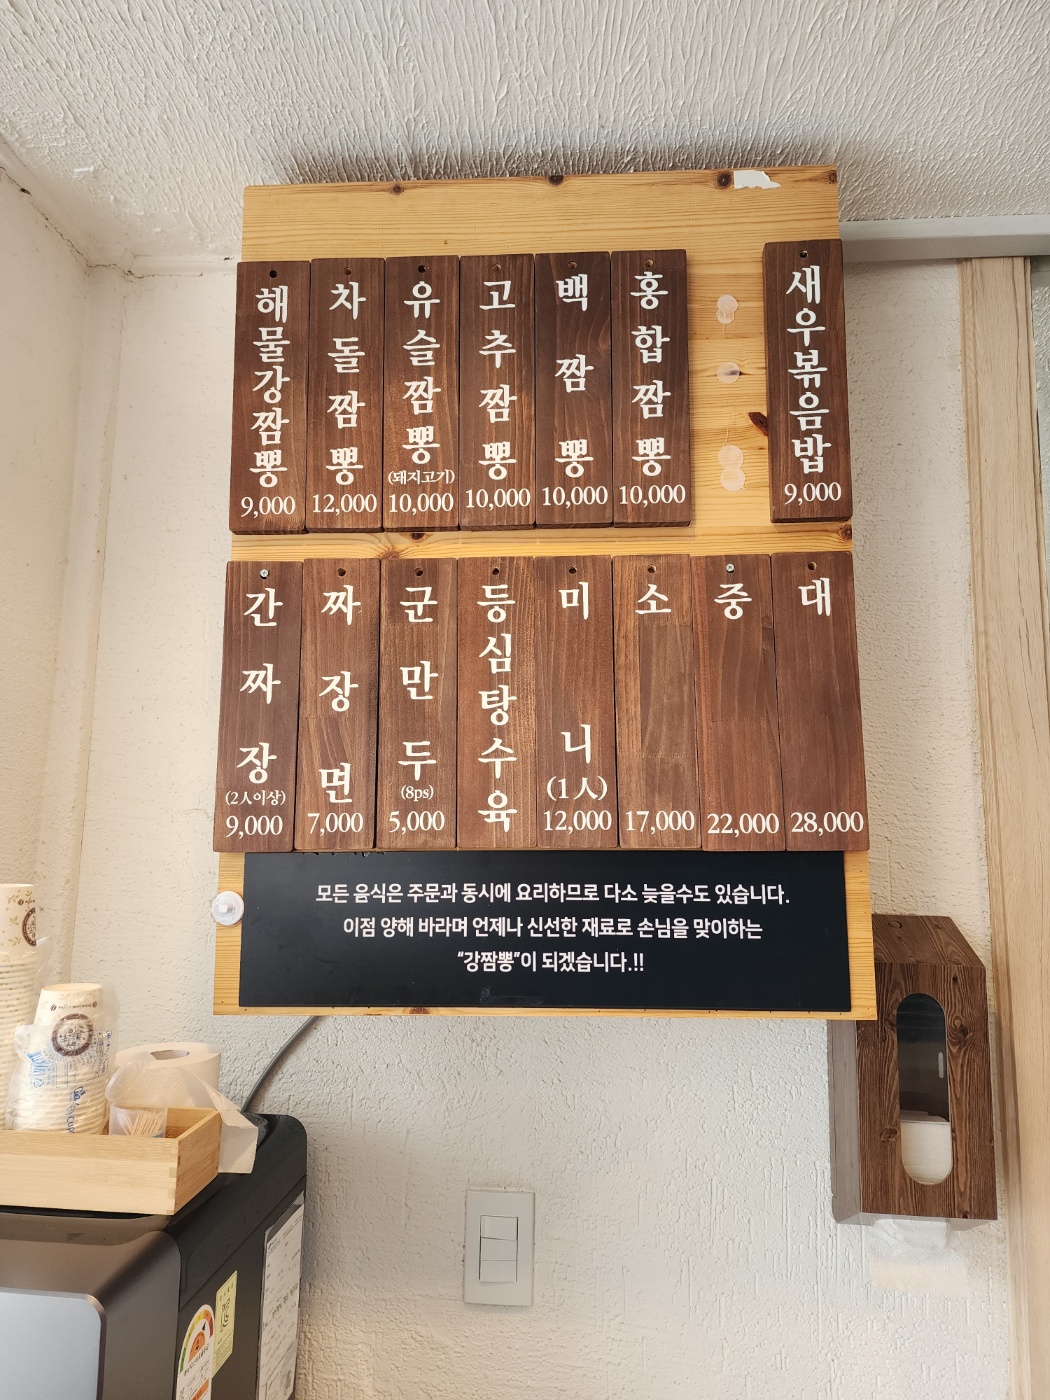 해물강짬뽕
9,000
차돌짬뽕
12,000
유슬짬뽕
(돼지고기)
10,000
고추짬뽕
10,000
백짬뽕
10,000
홍합짬뽕
10,000
새우볶음밥
9,000
간짜장
(2人이상)
9,000
짜장면
7,000
군만두
(8ps)
5,000
등심탕수육
미니
(1人)
12,000
소
17,000
중
22,000
대
28,000
모든 음식은 주문과 동시에 요리하므로 다소 늦을수도 있습니다.
이점 양해 바라며 언제나 신선한 재료로 손님을 맞이하는
“강짬뽕”이 되겠습니다.!!